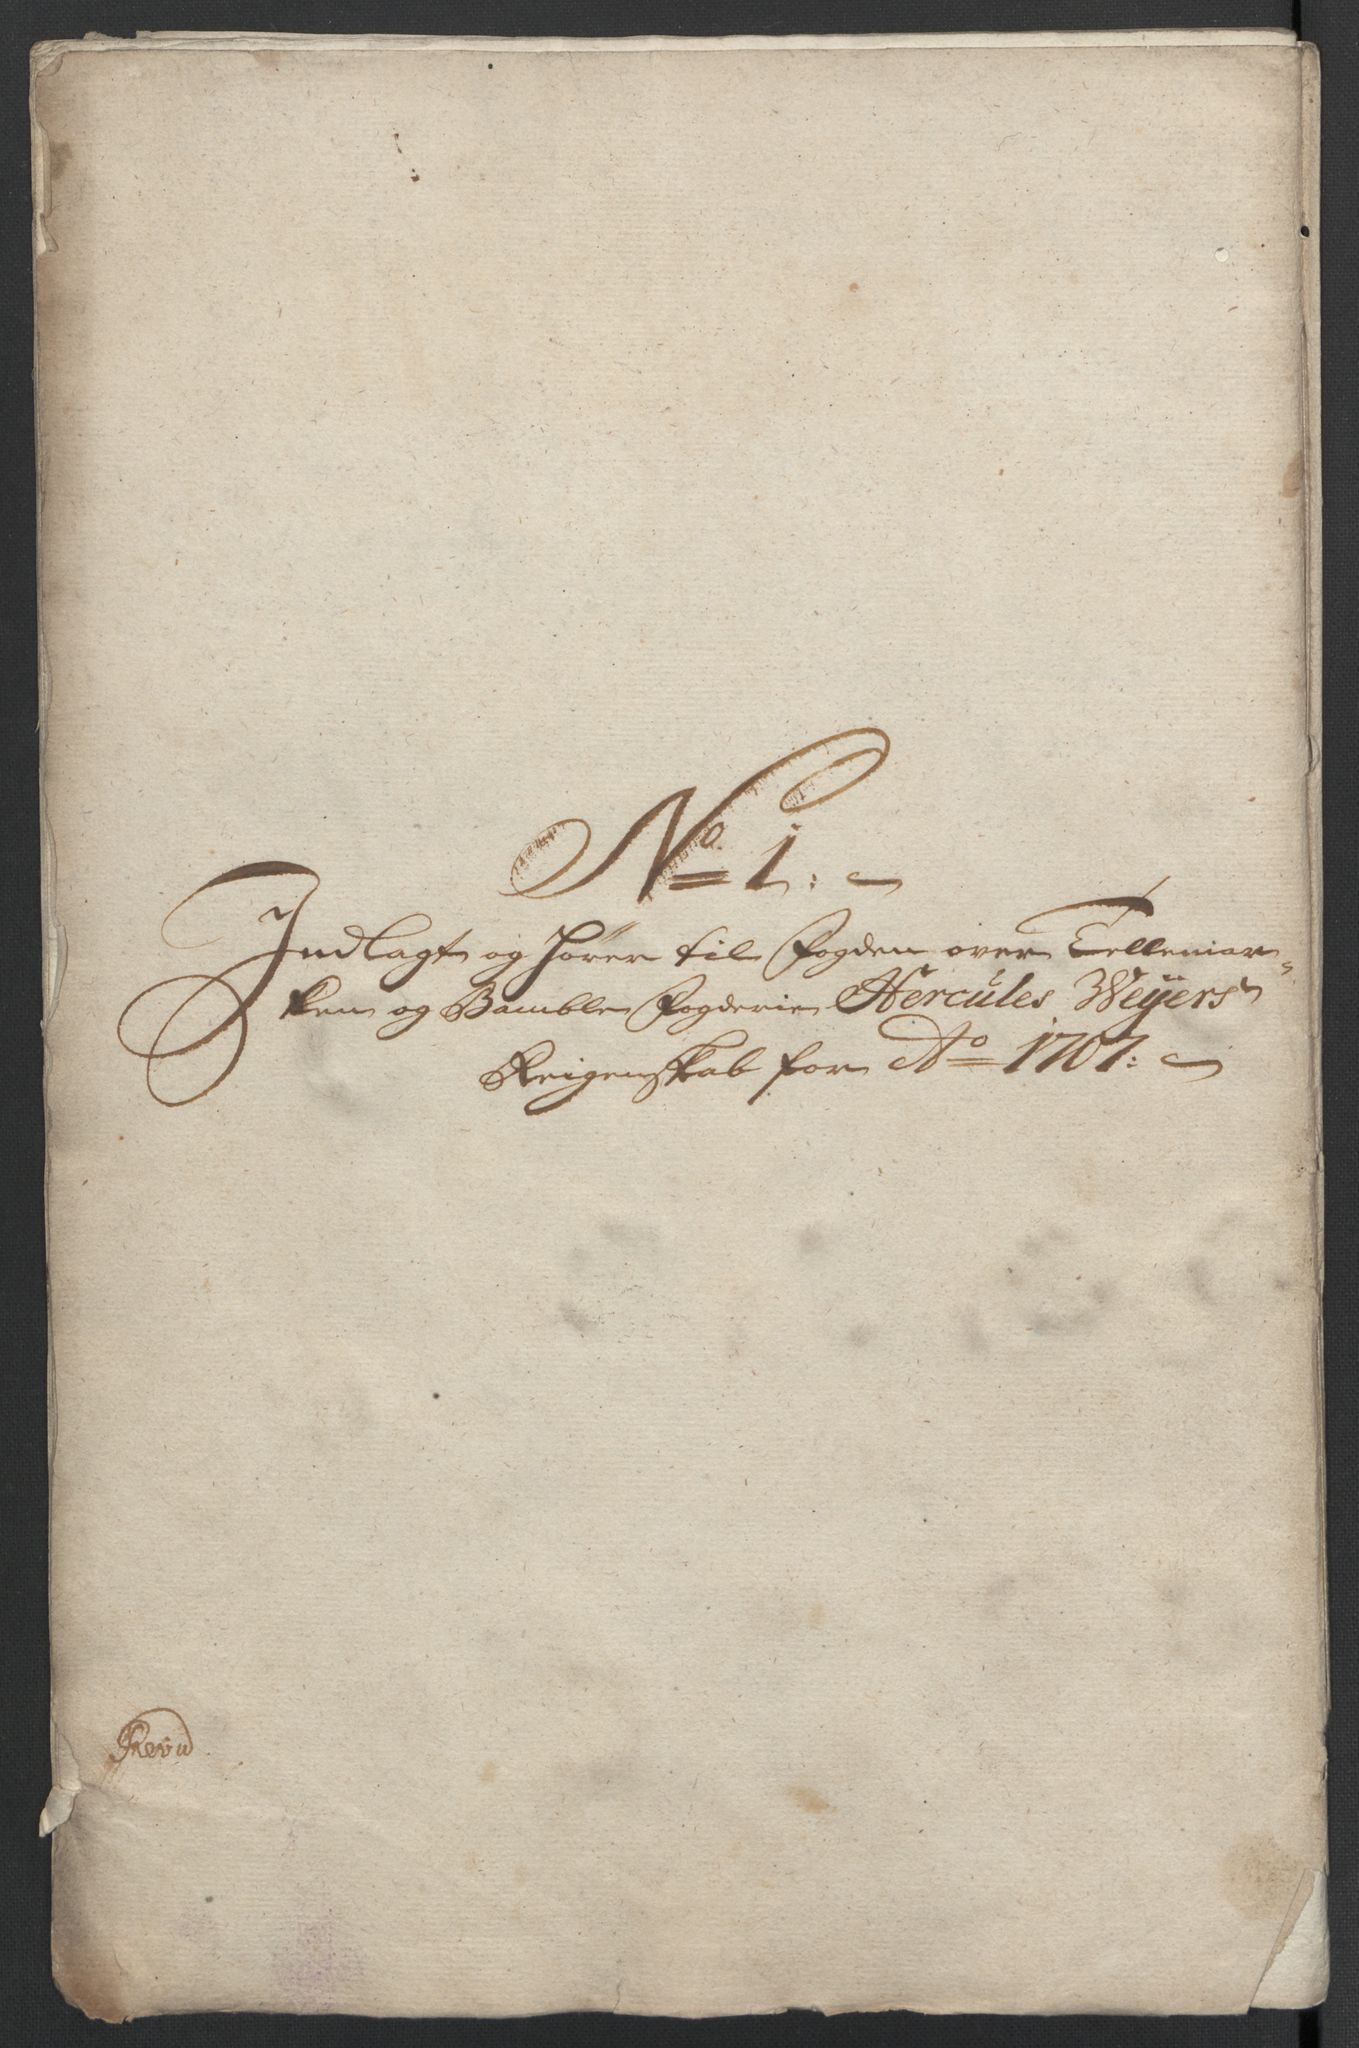 No 1:
Indlagt og hører til Fogden over Tellemar=
ken og Bamble Fogderie Hercules Weyers
Reigenskab for Ao 1707:
Revu